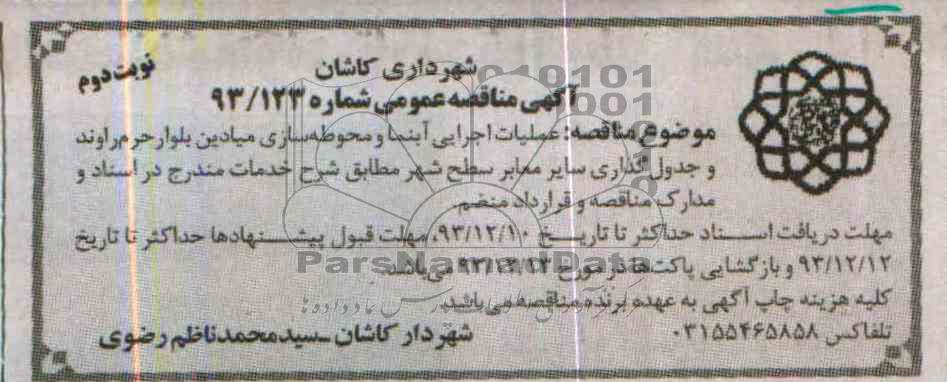 نوبت دوم
شهرداری کاشان
آگهی مناقصه عمومی شماره ۹۳/۱۲۳
موضوع مناقصه: عملیات اجرایی آبنما و محوطه‌سازی میادین بلوار حرم راوند
و جدول گذاری سایر معابر سطح شهر مطابق شرح خدمات مندرج در اسناد و
مدارک مناقصه و قرارداد منضم.
مهلت دریافت اسناد حداکثر تا تاریخ ۹۳/۱۲/۱۰، مهلت قبول پیشنهادها حداکثر تا تاریخ
۹۳/۱۲/۱۲ و بازگشایی پاکت‌ها در مورخ ۹۳/۱۲/۱۳ می‌باشد.
کلیه هزینه چاپ آگهی به عهده برنده مناقصه می باشد.
تلفاکس ۰۳۱۵۵۴۶۵۸۵۸
شهردار کاشان ـ سیدمحمدناظم رضوی
ParsNamadData